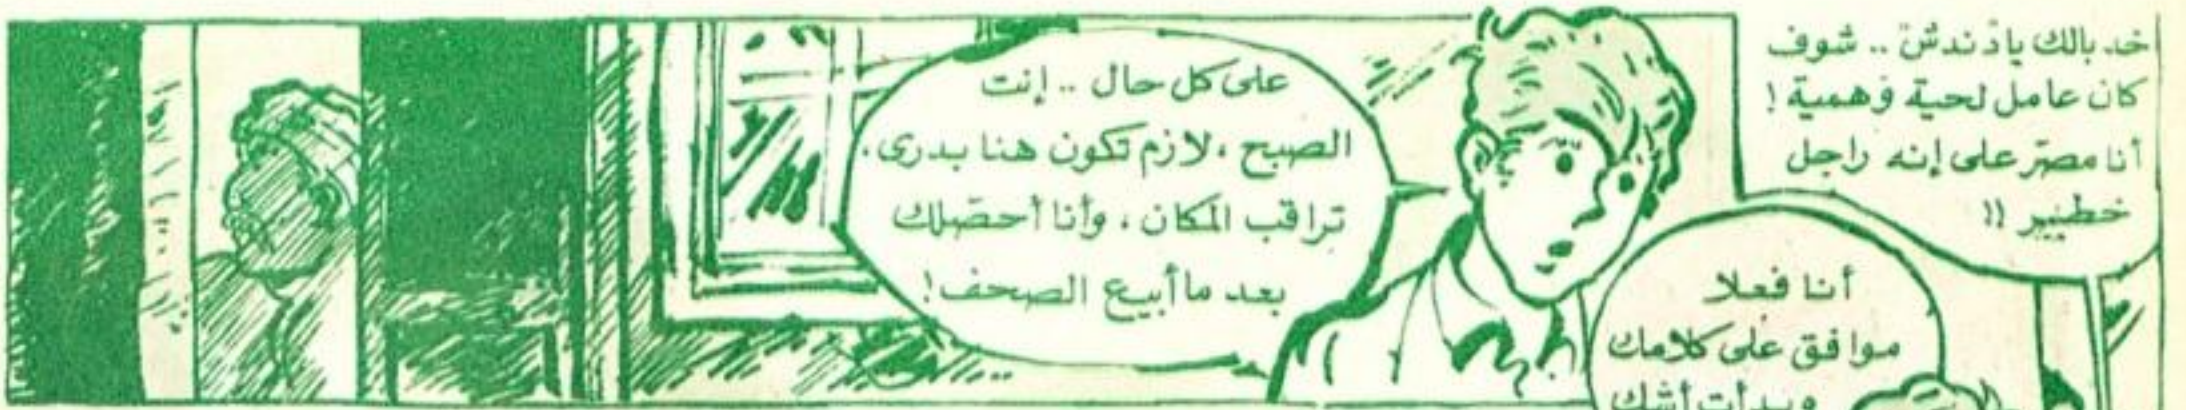 خد بالك يا دندش .. شوف
كان عامل لحية وهمية !
أنا مصرّ على إنه راجل
خطير !!
أنا فعلا
موافق على كلامك
وبدأت أشك
على كل حال .. إنت
الصبح ، لازم تكون هنا بدرى ،
تراقب المكان ، وأنا أحصّلك
بعد ما أبيع الصحف !